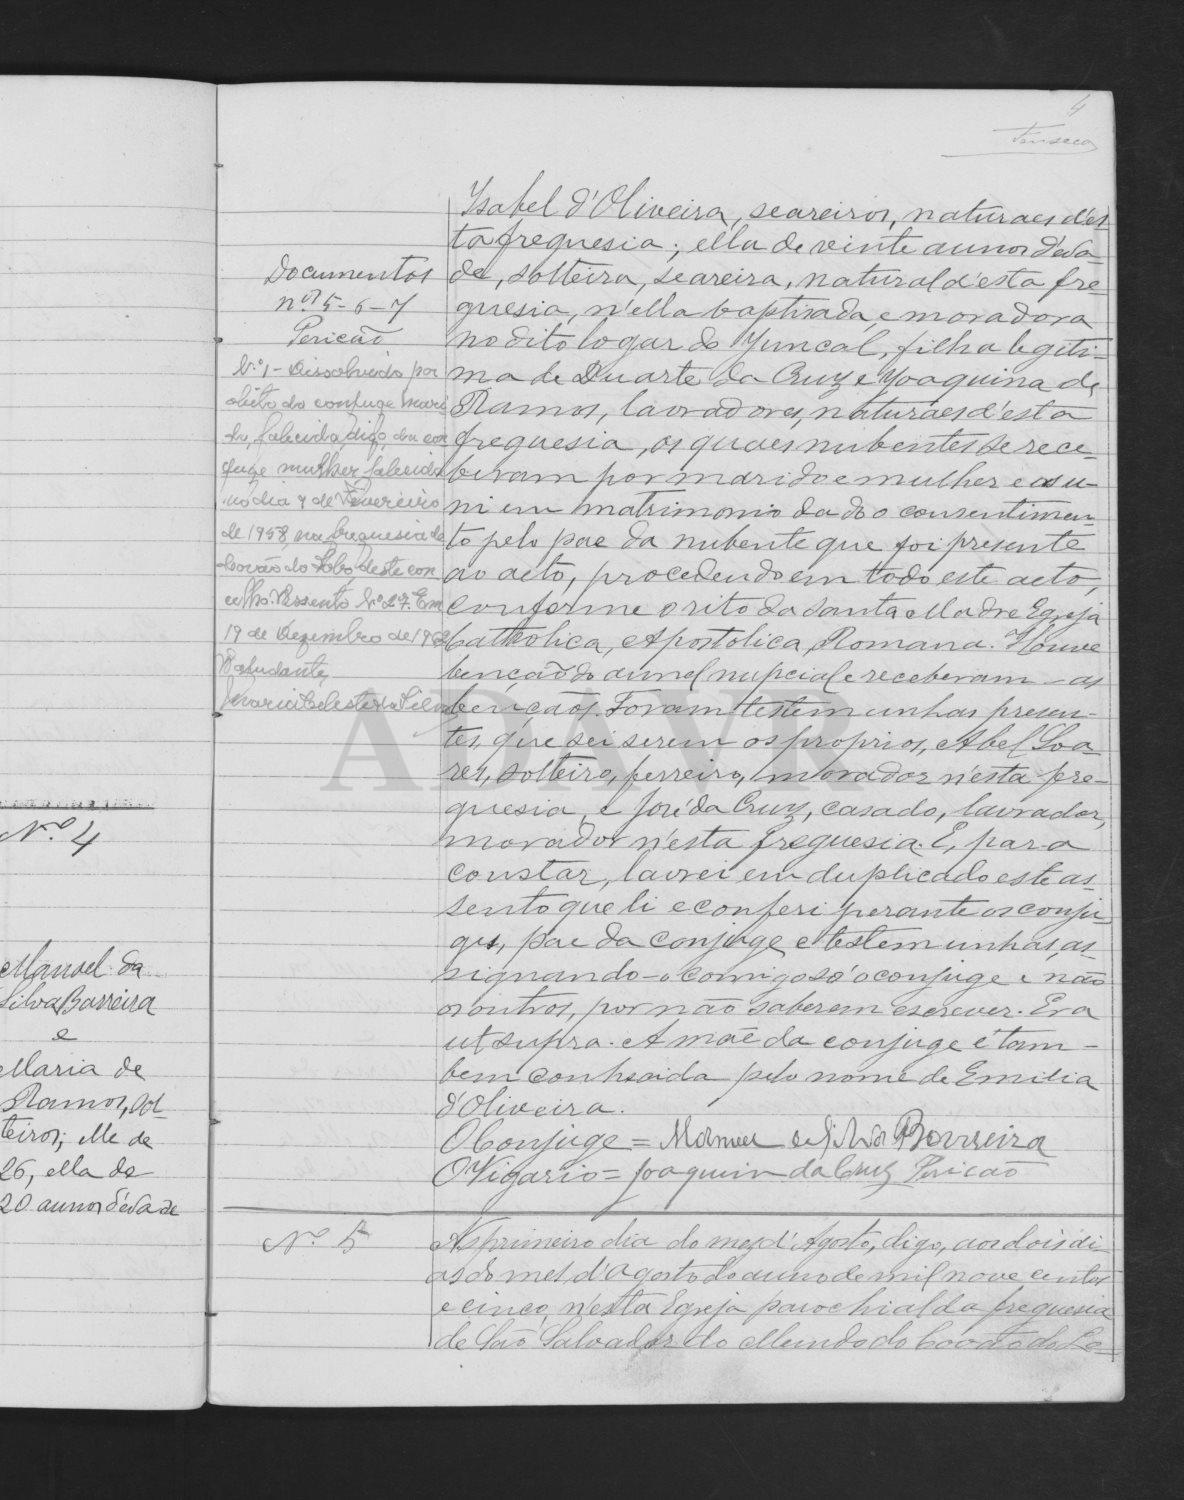 4
Fonseca
Nº 4
Manoel da
Silva Barreira
e
Maria de
Ramos, sol-
teiros; elle de
26, ella de
20 annos d'edade
Documentos
nos 5-6-7
Pericão
Nº 1 - Dissolvido por
obito do conjuge mari-
do, falecida digo, da con-
juge mulher falecida
no dia 7 de Fevereiro
de 1958, na freguesia de
Covão do Lobo, deste con-
celho. Assento Nº 27. Em
19 de Dezembro de 1962
O ajudante,
Maria Celeste da Silva
Ysabel d'Oliveira, seareiros, naturaes d'es-
ta freguesia; ella de vinte annos d'eda-
de, solteira, seareira, natural d'esta fre-
guesia, n'ella baptisada, e moradora
no dito logar do Juncal, filha legiti-
ma de Duarte da Cruz e Joaquina de
Ramos, lavradores, naturaes d'esta
freguesia, os quaes nubentes se rece-
beram por marido e mulher e os u-
ni em matrimonio dado o consentimen-
to pelo pae da nubente que foi presente
ao acto, procedendo em todo este acto,
conforme o rito da Santa Madre Egreja
Catholica, Apostolica, Romana. Houve
benção do annel nupcial e receberam - as
bençãos. Foram testemunhas presen-
tes, que sei serem os proprios, Abel Soa-
res, solteiro, ferreiro, morador n'esta fre-
guesia, e José da Cruz, casado, lavrador,
morador n'esta freguesia. E, para
constar, lavrei em duplicado este as-
sento que li e conferi perante os conju-
ges, pae da conjuge e testemunhas, as-
signando-o comigo só o conjuge e não
os outros, por não saberem escrever. Era
ut supra. A mãe da conjuge é tam-
bem conhecida pelo nome de Emilia
d'Oliveira.
O Conjuge = Manuel da Silva Barreira
O Vigario = Joaquim da Cruz Pericão
Nº 5
As primeiro dia do mez d'Agosto, digo, aos dois di-
as do mes d'agosto do anno de mil nove centos
e cinco, n'esta Egreja parochial da freguesia
de São Salvador do Mundo do Covão do Lo-
ADAVR